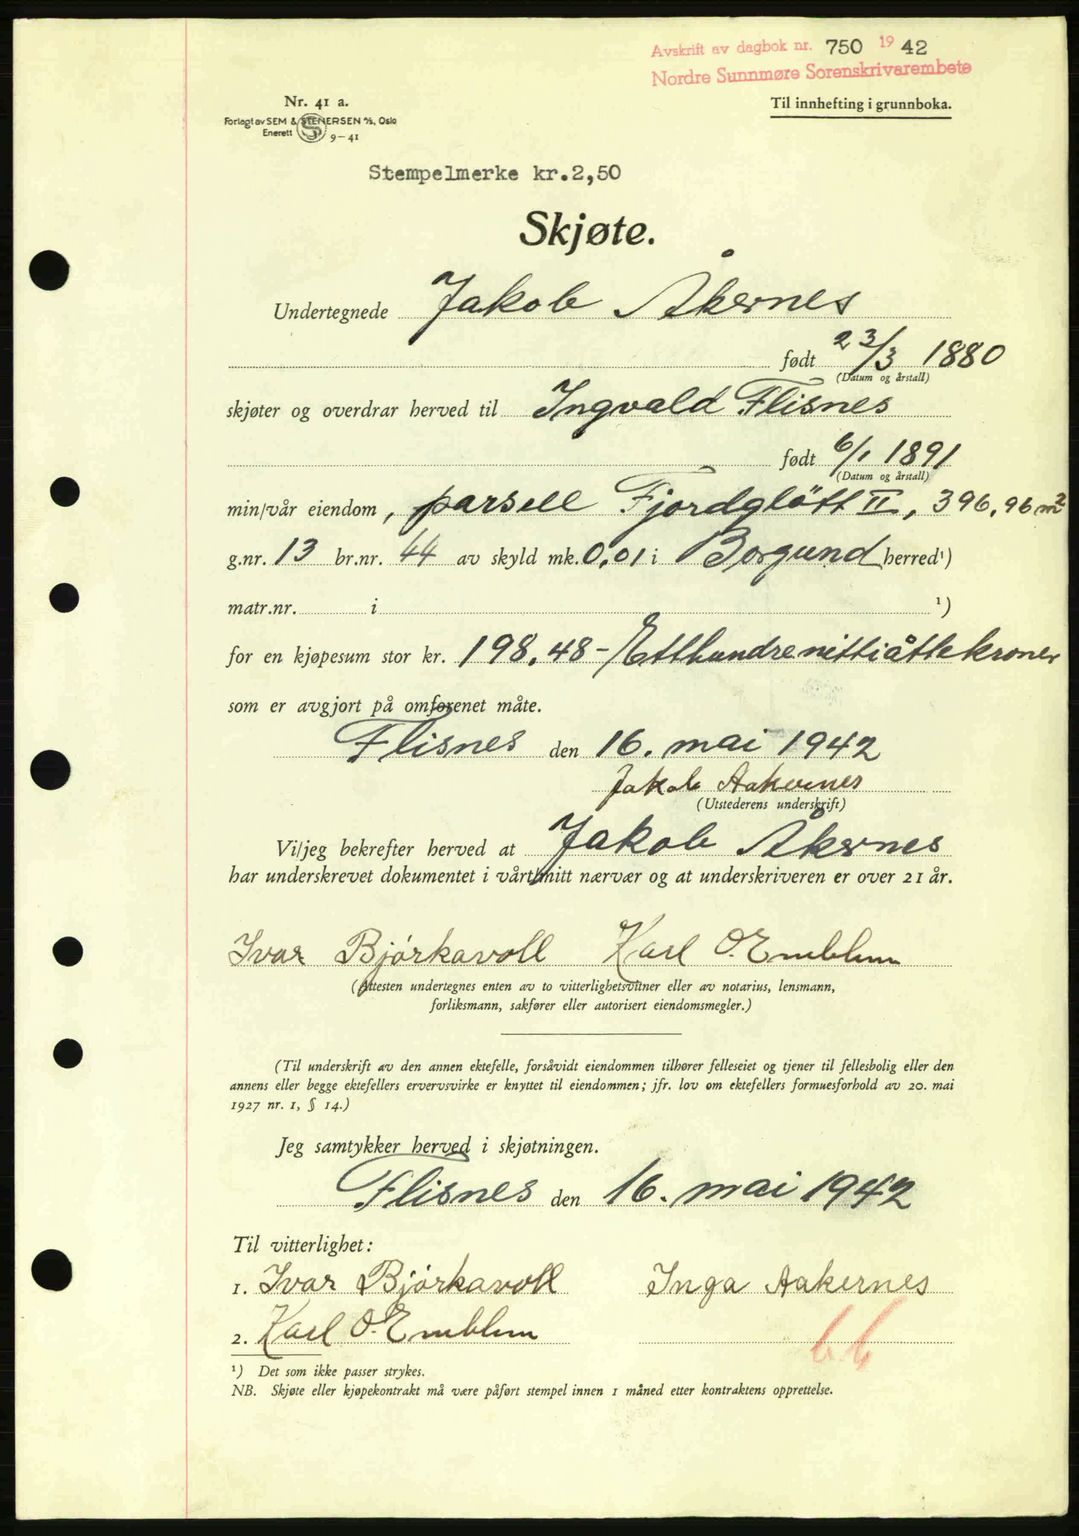 Avskrift av dagbok nr. 750 1942
Nordre Sunnmøre Sorenskrivarembete
Nr. 41 a.
Til innhefting i grunnboka.
Forlagt av SEM & STENERSEN A/S, Oslo
Enerett 9-41
Stempelmerke kr.2,50
Skjøte.
Undertegnede Jakob Åkernes
født 23/3 1880
(Datum og årstall)
skjøter og overdrar herved til Ingvald Flisnes
født 6/1 1891
(Datum og årstall)
min/vår eiendom, parsell Fjordgløtt II, 396,96 m²
g.nr. 13 br.nr. 44 av skyld mk. 0,01 i Borgund herred¹)
matr.nr. i ¹)
for en kjøpesum stor kr. 198,48 - Etthundrenittiåtte kroner
som er avgjort på omforenet måte.
Flisnes den 16. mai 1942
Jakob Aakernes
(Utstederens underskrift)
Vi/jeg bekrefter herved at Jakob Åkernes
har underskrevet dokumentet i vårt/mitt nærvær og at underskriveren er over 21 år.
Ivar Bjórkavoll Karl O. Emblem
(Attesten undertegnes enten av to vitterlighetsvitner eller av notarius, lensmann,
forliksmann, sakfører eller autorisert eiendomsmegler.)
(Til underskrift av den annen ektefelle, forsåvidt eiendommen tilhører felleseiet og tjener til fellesbolig eller den
annens eller begge ektefellers ervervsvirke er knyttet til eiendommen; jfr. lov om ektefellers formuesforhold av 20. mai
1927 nr. 1, § 14.)
Jeg samtykker herved i skjøtningen.
Flisnes den 16. mai 1942
Til vitterlighet:
1. Ivar Bjórkavoll Inga Aakernes
2. Karl O. Emblem
66
¹) Det som ikke passer strykes.
NB. Skjøte eller kjøpekontrakt må være påført stempel innen 1 måned etter kontraktens opprettelse.